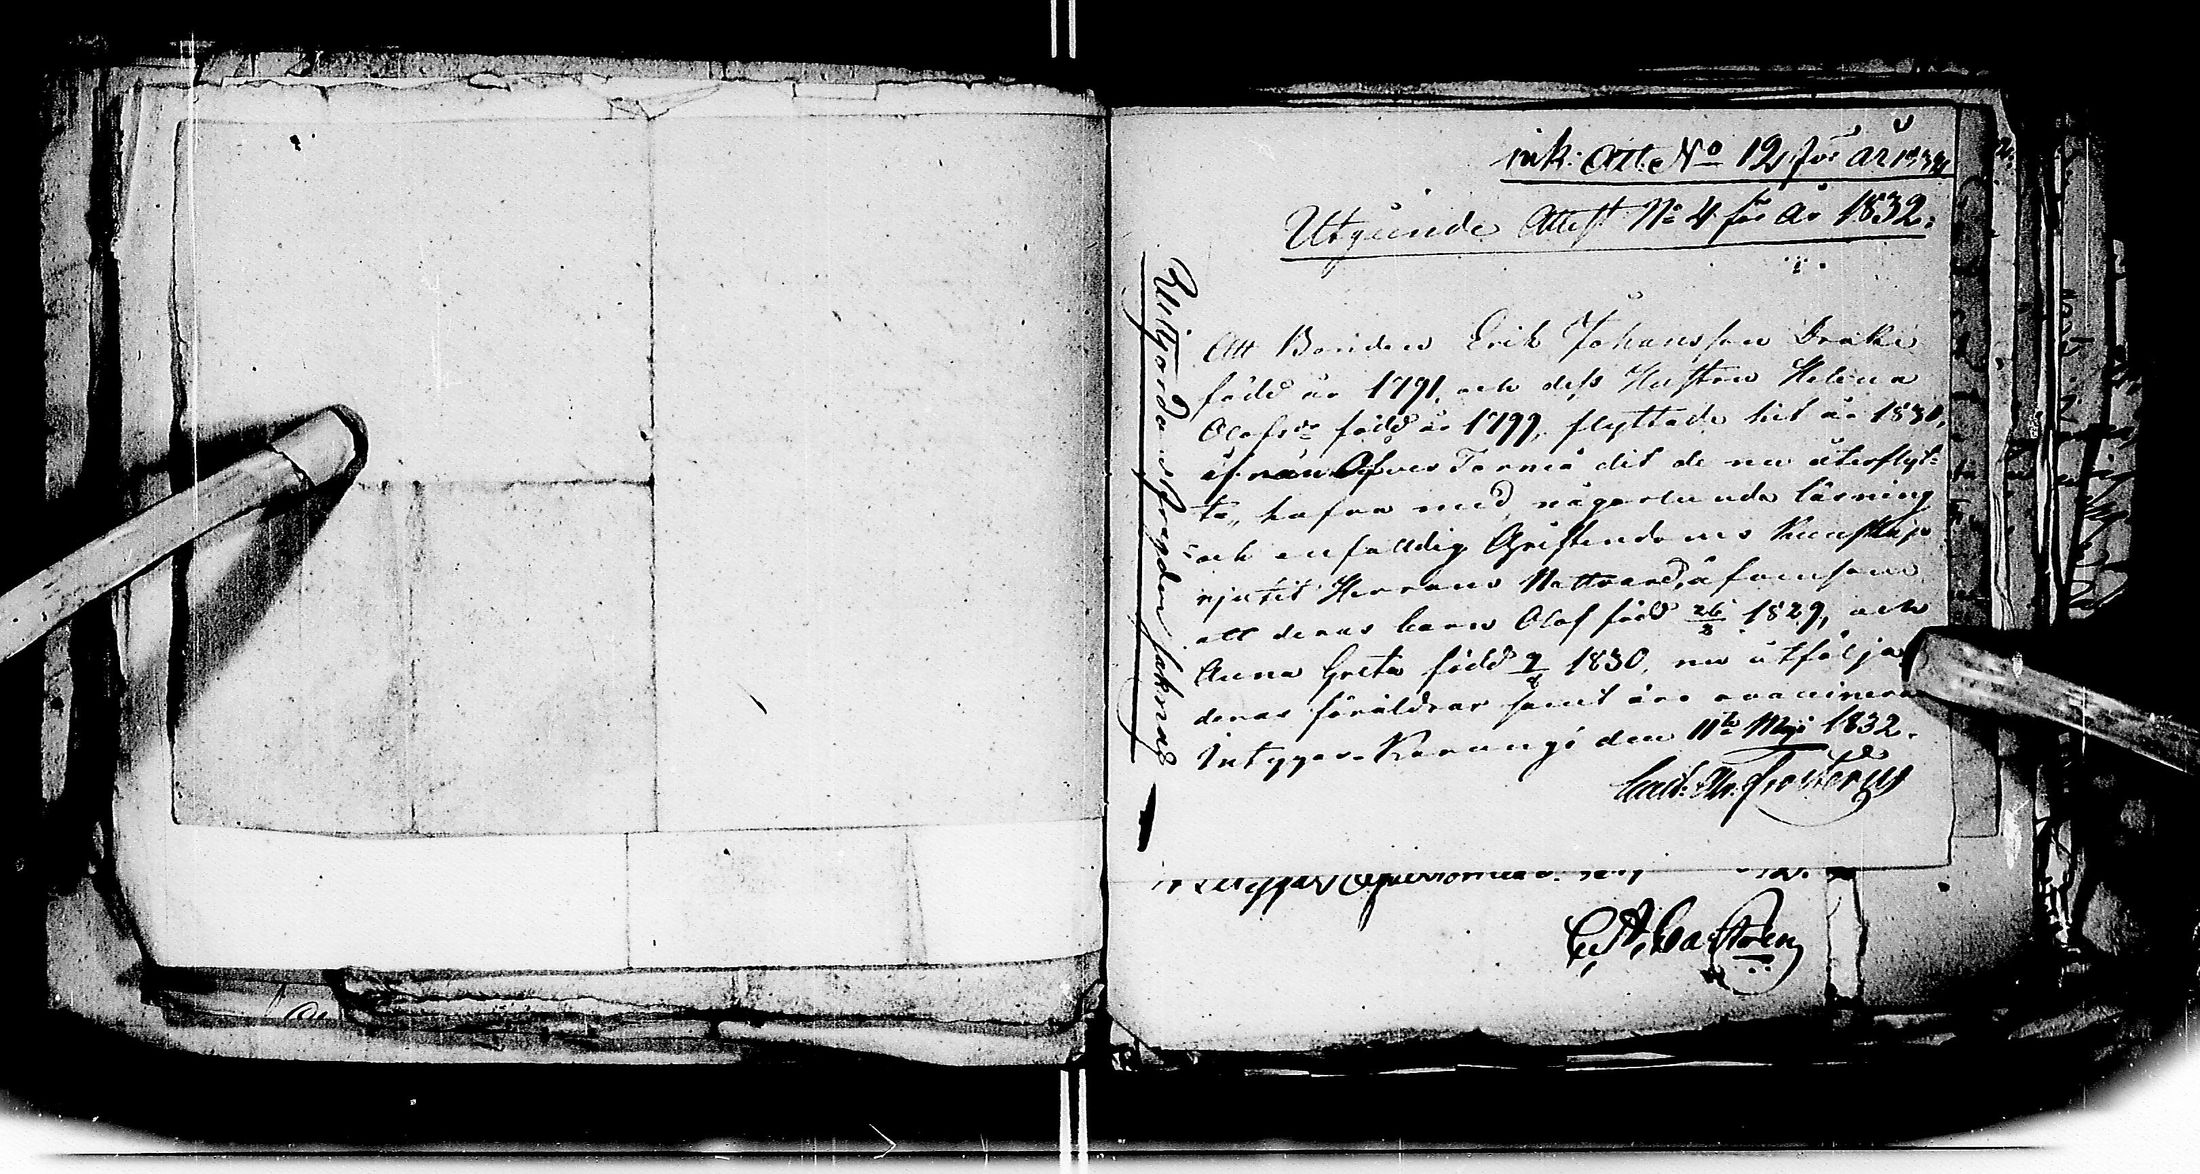 ink: Att. No 12 för år 1832
Utgående Attest No 4 för År 1832.
Att Bonden Erik Johansson Drake
född år 1791, och dess Hustru Helena
Olofsdr född år 1799, flyttade hit år 1830,
ifrån Öfver Torneå dit de nu återflyt-
ta, hafva med någorlunda läsning
och enfaldig Christendoms Kunskap
njutit Herrans Nattvard, äfvensom
att deras barn Olof född 26/2 1829, och
Anna Greta född 9/ 1830, nu åtfölja
deras föräldrar samt äro vaccinerade
Intygar. Karungi den 11te Maji 1832.
Frosterus
C. A. Castrén